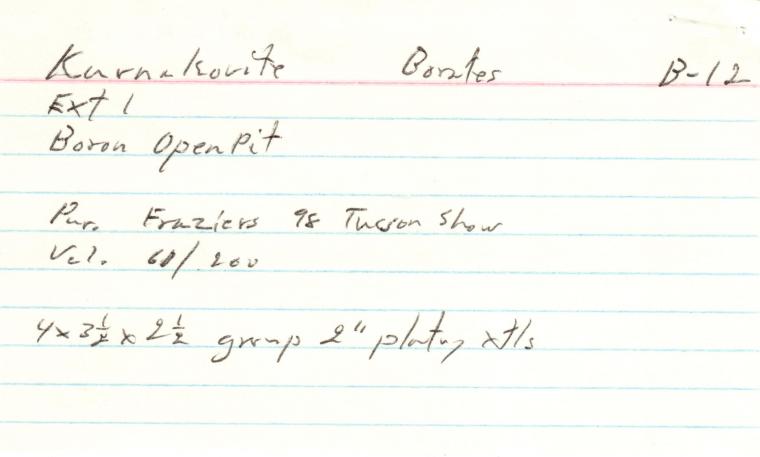 Kurnakovite Borates B-12
Ext 1
Boron Open Pit
Pur. Fraziers 98 Tucson Show
Val. 60/200
4x3½x2½ group 2" platey xtls